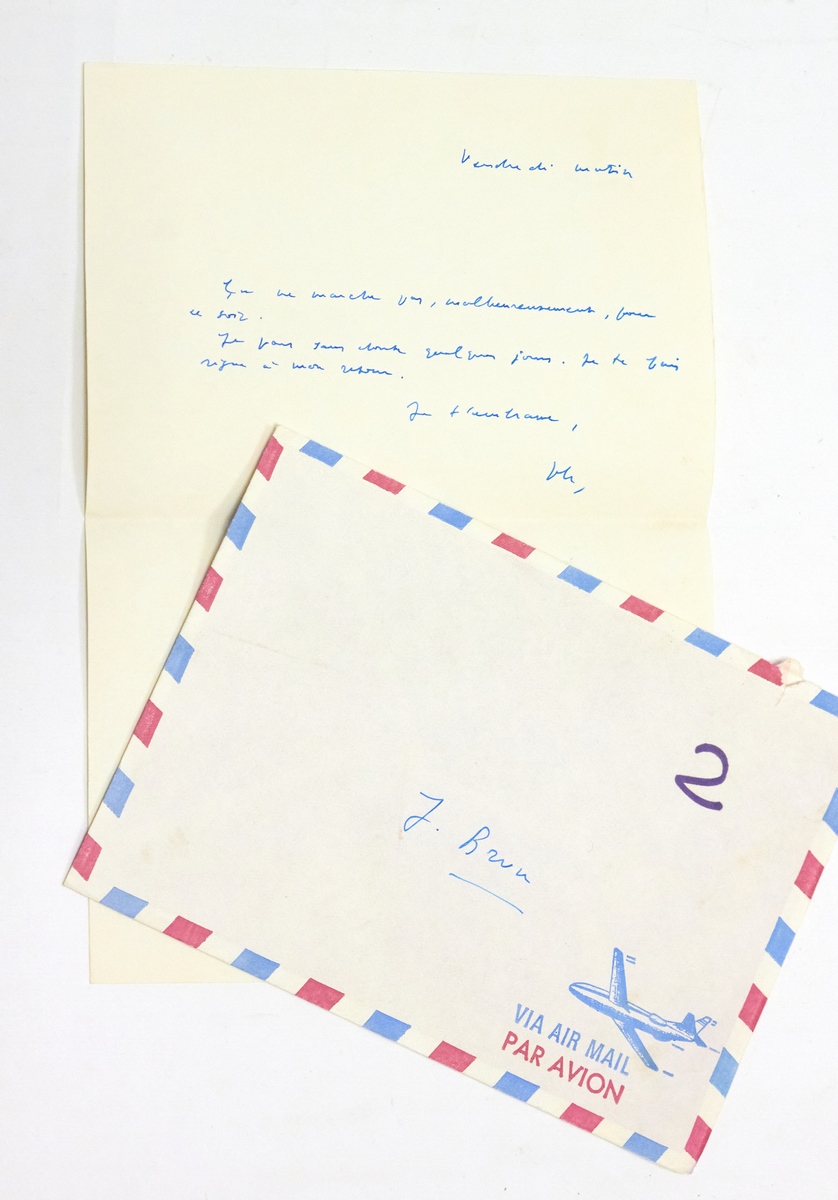 Vendredi matin
Ça ne marche pas, malheureusement, pour
ce soir.
Je pars sans doute quelques jours. Je te fais
signe à mon retour.
Je t'embrasse,
2
J. Brun
VIA AIR MAIL
PAR AVION